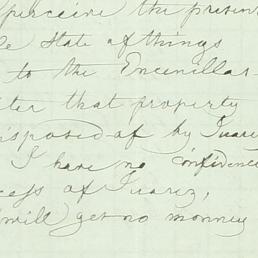 perceive the present
le State of things
to the Encenillar
ter that property
isposed of by Juarez
I have no confidence
cess of Juarez,
will get no monney